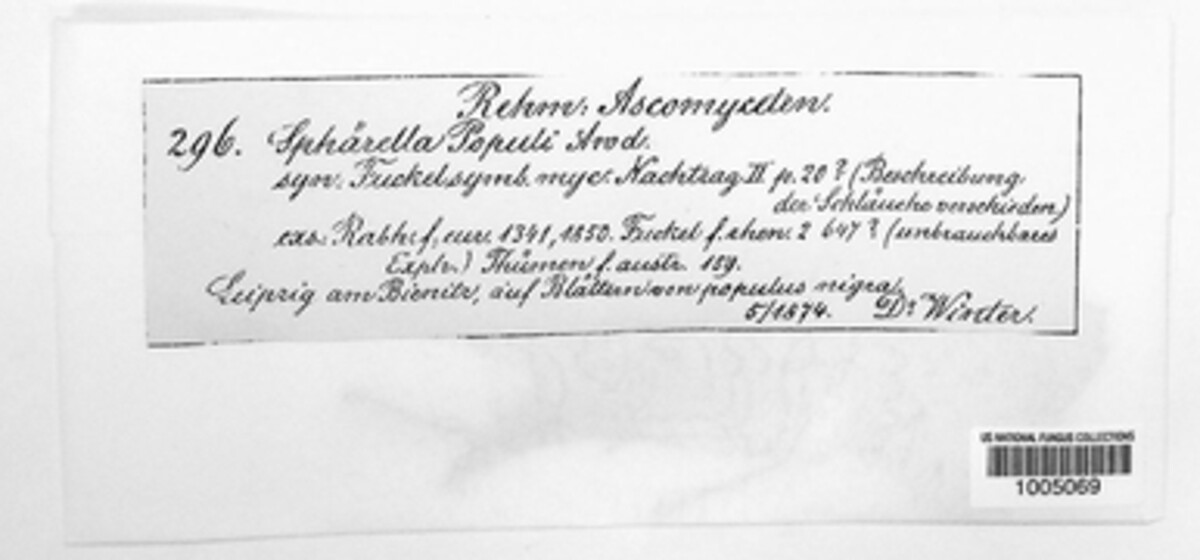 Rehm: Ascomyceten.
296. Sphärella Populi Awd.
syn. Fuckel symb. myc. Nachtrag III p. 20? (Beschreibung
der Schläuche verschieden)
exs. Rabh. f. eur. 1341, 1850. Fuckel f. rhen. 2 647? (unbrauchbares
Explr.) Thümen f. austr. 159.
Leipzig am Bienitz, auf Blättern von populus nigra,
5/1874. Dr. Winter.
US NATIONAL FUNGUS COLLECTIONS
1005069